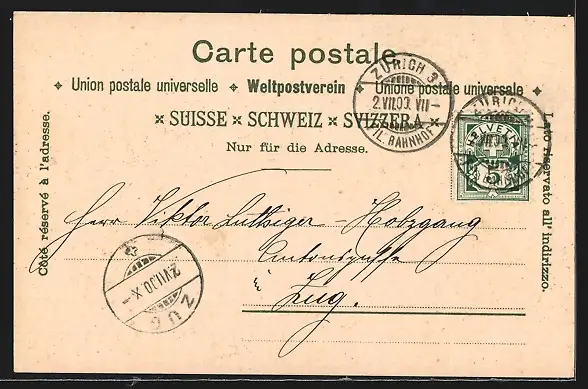 Carte postale
Union postale universelle ✦ Weltpostverein ✦ Unione postale universale
× SUISSE × SCHWEIZ × SVIZZERA ×
Nur für die Adresse.
Côté réservé à l'adresse.
Lato riservato all' indirizzo.
ZÜRICH 3
2.VII.00. VII–
FIL. BAHNHOF
ZÜRICH
HELVETIA
5
Herr Viktor Luthiger – Hotzgang
Zug.
ZUG
2.VII.00.X–